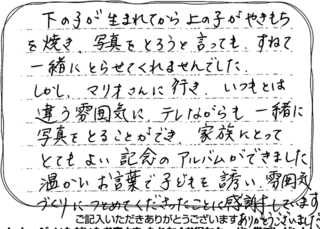 下の子が生まれてから上の子がやきもち
を焼き、写真をとろうと言っても、すねて
一緒にとらせてくれませんでした。
しかし、マリオさんに行き、いつもとは
違う雰囲気に、テレながらも一緒に
写真をとることができ、家族にとって
とてもよい記念のアルバムができました。
温かいお言葉で子どもを諭い、雰囲気
づくりにつとめてくださったことに感謝しています
ご記入いただきありがとうございます
ありがとうございました